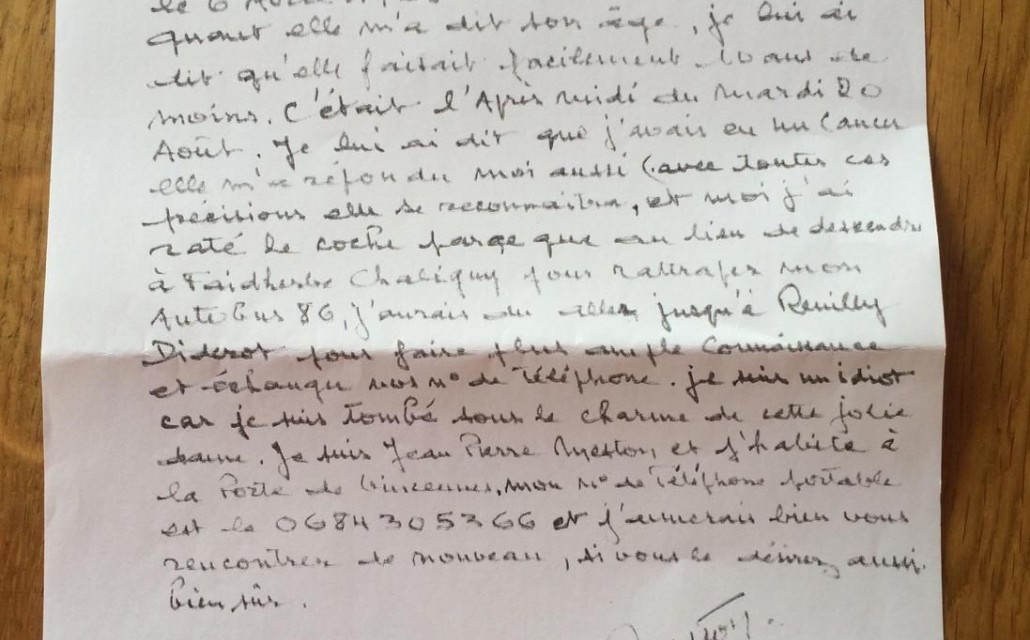 le 6
quand elle m'a dit son âge, je lui ai
dit qu'elle faisait facilement 10 ans de
moins. C'était l'Après midi du Mardi 20
Août. Je lui ai dit que j'avais eu un Cancer
elle m'a répondu moi aussi (avec toutes ces
précisions elle se reconnaitra, et moi j'ai
raté le coche parce que au lieu de descendre
à Faidherbe Chaligny pour rattraper mon
Autobus 86, j'aurais du aller jusqu'à Reuilly
Diderot pour faire plus ample Connaissance
et échanger nos n° de Téléphone. je suis un idiot
car je suis tombé sous le charme de cette jolie
dame. Je suis Jean Pierre et j'habite à
la Porte de Vincennes, mon n° de Téléphone portable
est le 0684305366 et j'aimerais bien vous
rencontrer de nouveau, si vous le désirez aussi
bien sûr.